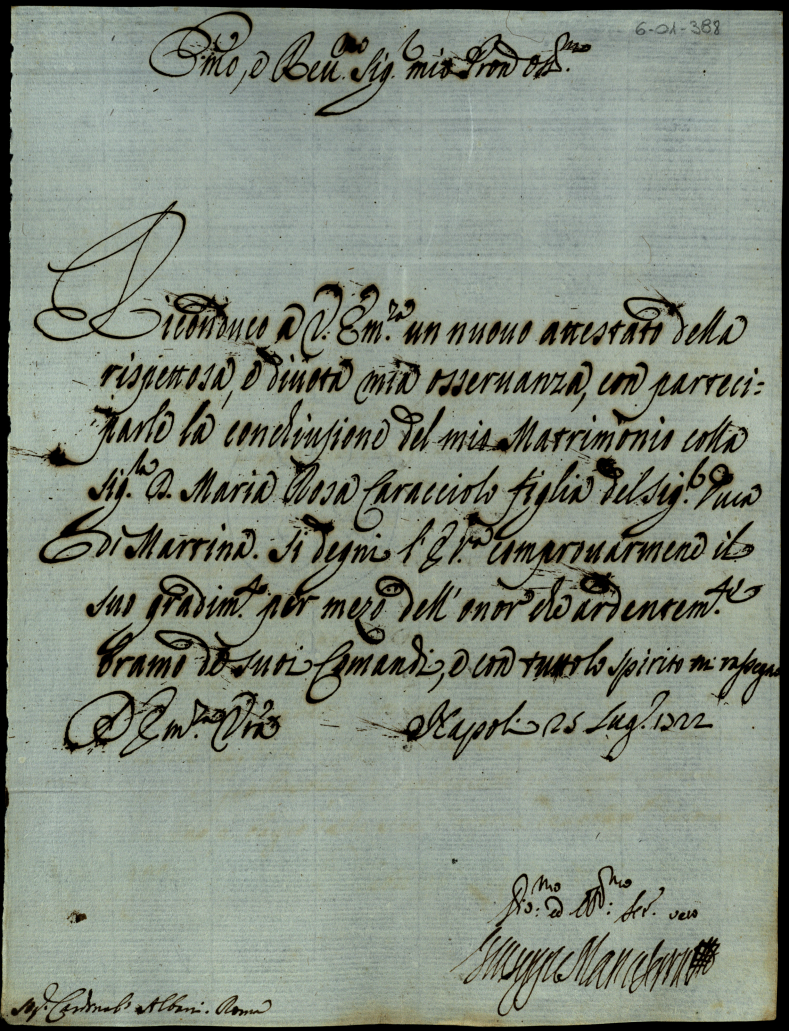 6-01-388
E.mo, e Reu.mo Sig.r mio Pron Oss.mo
Riconduco a V. Em.za un nuouo attestato della
rispettosa, e diuota mia osseruanza, con parteci=
parle la conchiusione del mio Matrimonio colla
Sig.ra D. Maria Rosa Caracciolo figlia del Sig.r Duca
di Martina. Si degni l'E V.ra comprouarmene il
suo gradim.to per mezo dell'onor che ardentem.te
bramo de suoi Comandi, e con tutto lo spirito mi rassegno
D. Em.za Vra Napoli 25 Lug.o 1722
Diu.mo ed Obb.mo Ser.r vero
Giuseppe
Sig.r Cardinale Albani. Roma